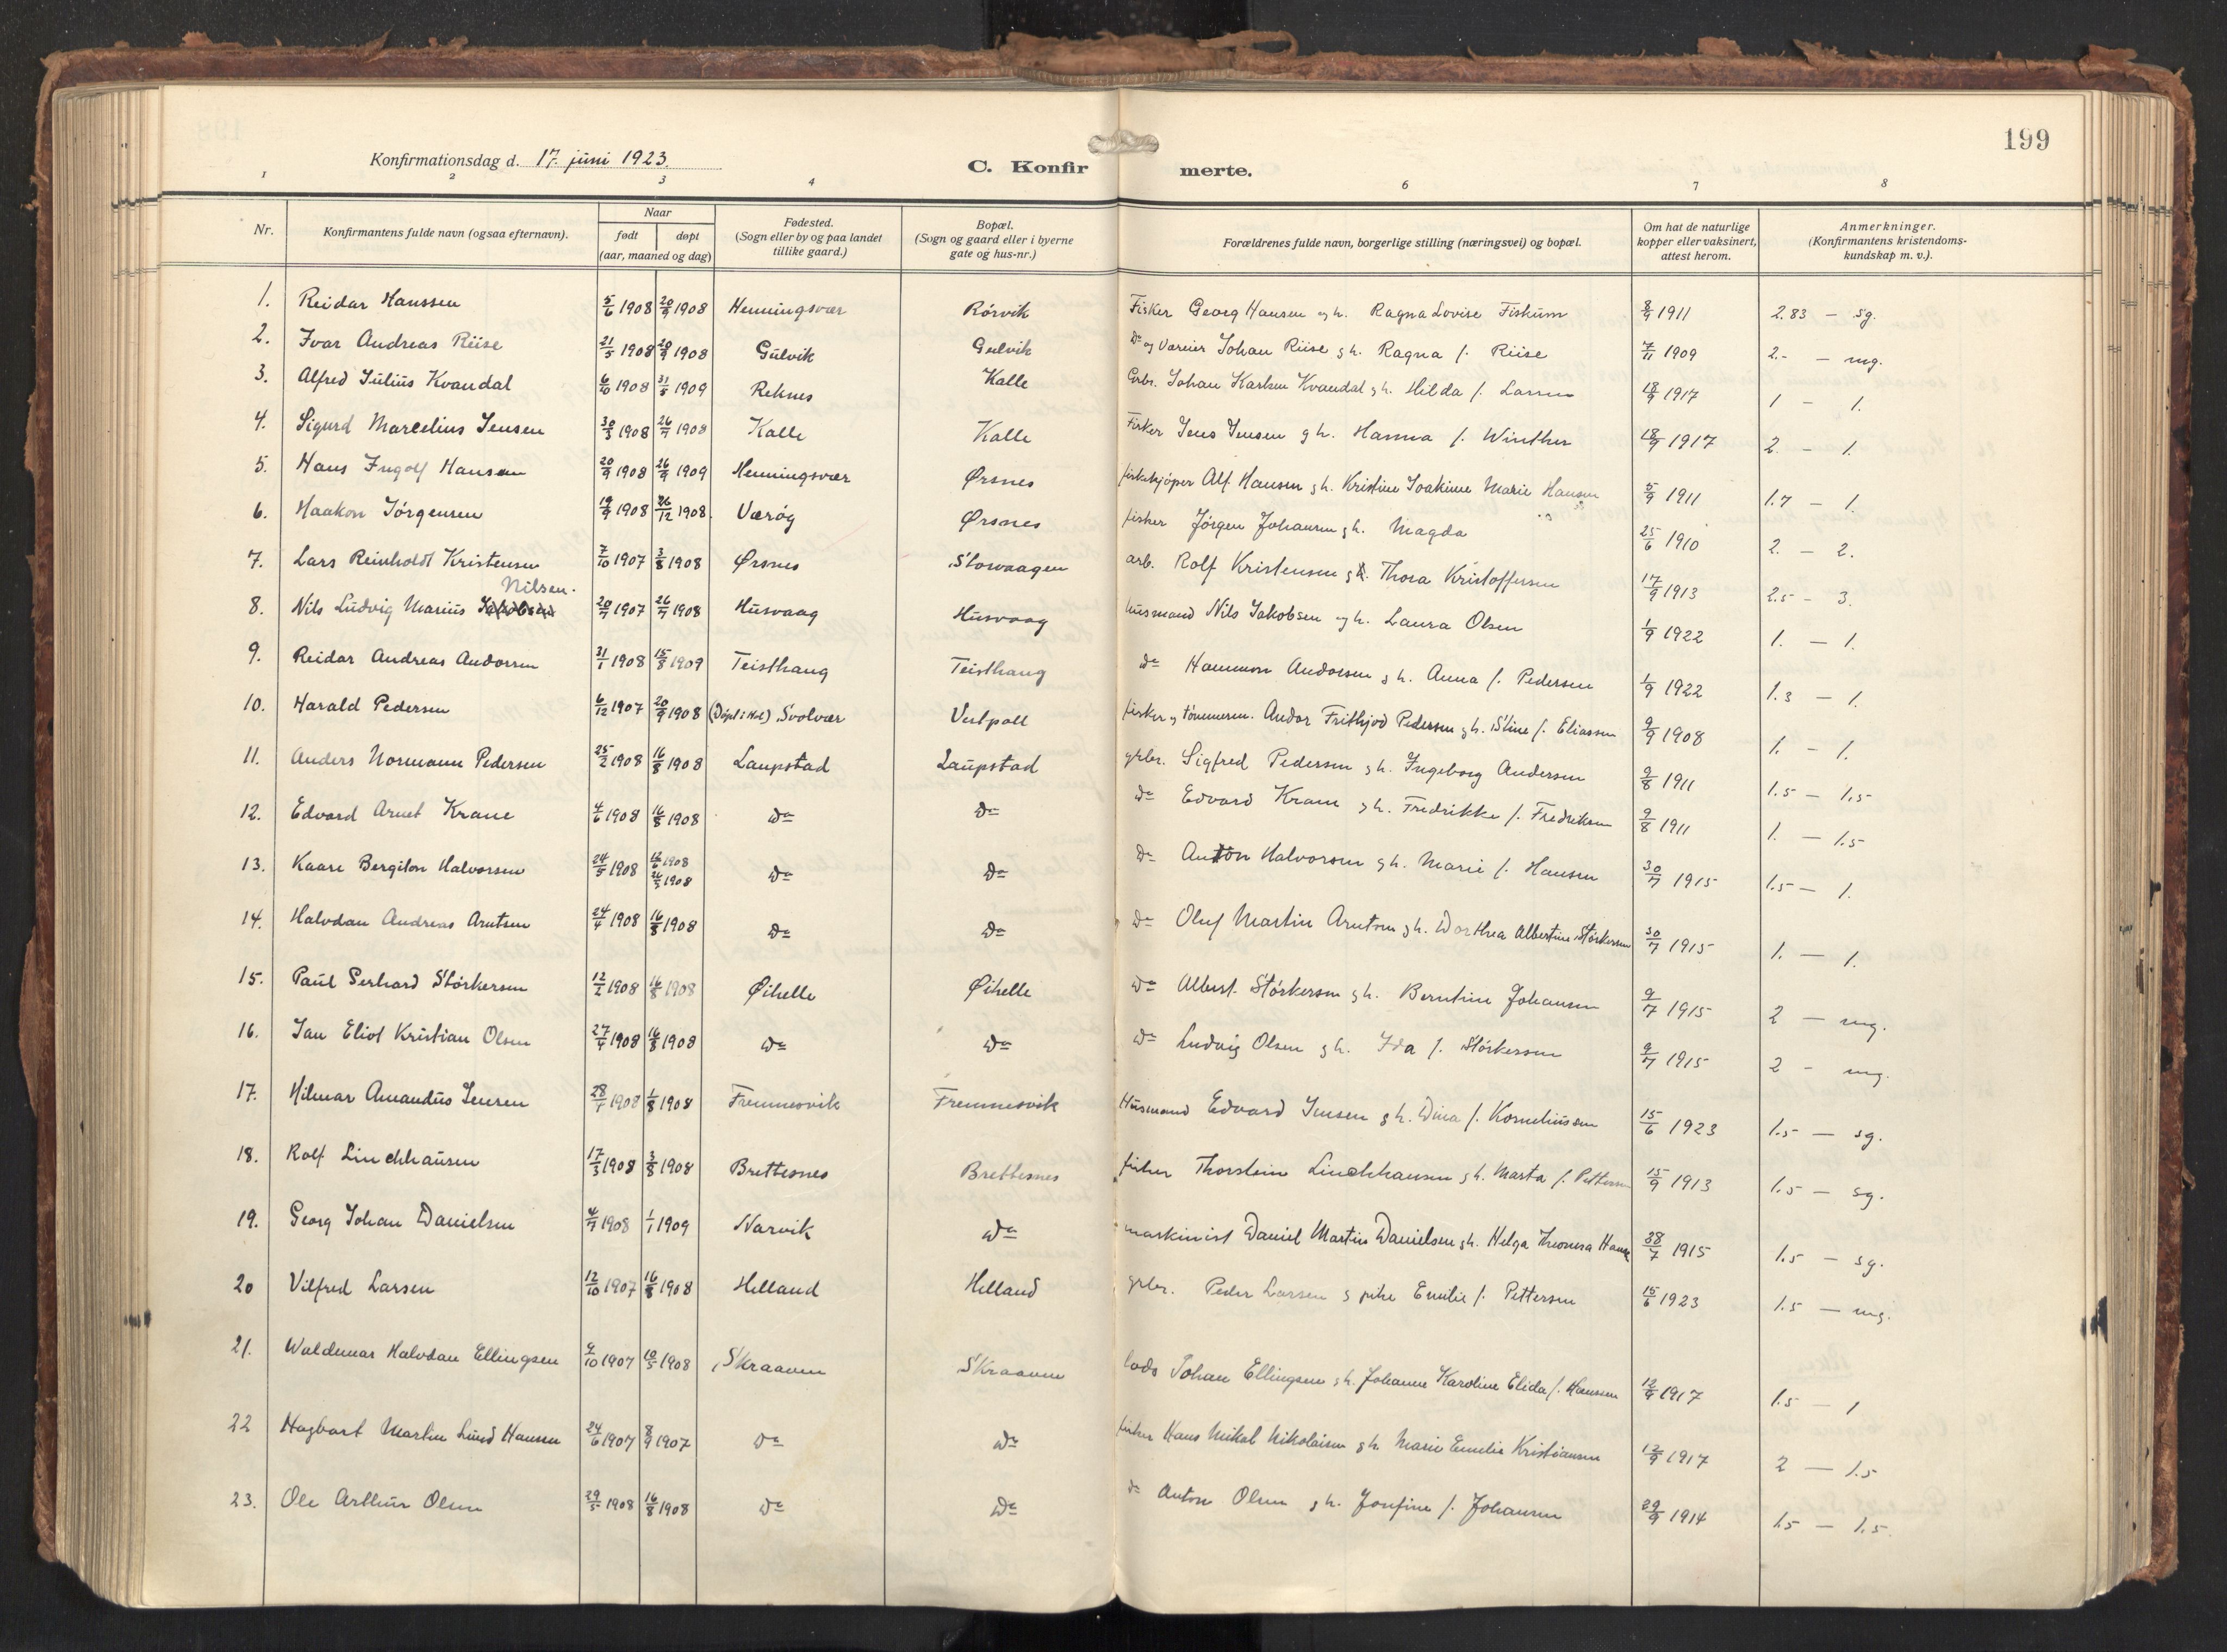 199
Konfirmationsdag d. 17. juni 1923.
C. Konfirmerte.
1 2 3 4 6 7 8
Nr. Konfirmantens fulde navn (ogsaa efternavn). Naar født døpt (aar, maaned og dag) Fødested. (Sogn eller by og paa landet tillike gaard.) Bopæl. (Sogn og gaard eller i byerne gate og hus-nr.) Forældrenes fulde navn, borgerlige stilling (næringsvei) og bopæl. Om hat de naturlige kopper eller vaksinert, attest herom. Anmerkninger. (Konfirmantens kristendoms-kundskap m. v.).
1. Reidar Hanssen 5/6 1908 20/9 1908 Henningsvær Rørvik Fisker Georg Hansen og h. Ragna Lovise Fiskum 8/9 1911 2.83 – sg.
2. Ivar Andreas Riise 21/5 1908 20/9 1908 Gulvik Gulvik Do og Væreier Johan Riise g h. Ragna f. Riise 7/11 1909 2.- – mg.
3. Alfred Julius Kvandal 6/10 1908 31/5 1909 Reknes Kalle Johan Karlsen Kvandal g h. Hilda f. Larsen 18/9 1917 1 – 1.
4. Sigurd Marcelius Jensen 30/3 1908 26/7 1908 Kalle Kalle Fisker Jens Jensen g h. Hanna f. Winther 18/9 1917 2. – 1.
5. Hans Ingolf Hansen 20/9 1908 26/9 1909 Henningsvær Ørsnes fiskekjøper Alf Hansen g h. Kristine Joakime Marie Hansen 5/9 1911 1.7 – 1.
6. Haakon Jørgensen 19/9 1908 26/12 1908. Værøy Ørsnes fisker Jørgen Johansen g h. Magda 25/6 1910 2. – 2.
7. Lars Reinholdt Kristensen 7/10 1907 3/8 1908 Ørsnes Storvaagen arb. Rolf Kristensen g h. Thora Kristoffersen 17/9 1913 2.5 – 3.
Nilsen.
8. Nils Ludvig Marius Jakobsen 20/7 1907 26/7 1908 Husvaag Husvaag husmand Nils Jakobsen og h. Laura Olsen 1/9 1922 1. – 1.
9. Reidar Andreas Andorsen 31/1 1908 15/8 1909 Teisthaug Teisthaug do Hammon Andorsen g h. Anna f. Pedersen 1/9 1922 1.3 – 1.
10. Harald Pedersen 6/12 1907 20/9 1908 (Døpt i Hol) Svolvær Vestpoll fisker og tømmerm. Andor Frithjod Pedersen g h. Stine f. Eliassen 9/9 1908 1. – 1.
11. Anders Normann Pedersen 25/2 1908 16/8 1908 Laupstad Laupstad grbr. Sigfred Pedersen g h. Ingeborg Andersen 9/8 1911 1.5 – 1,5
12. Edvard Arnet Krane 4/6 1908 16/8 1908 Do Do Do Edvard Krane g h. Fredrikke f. Fredriksen 9/8 1911 1. – 1.5
13. Kaare Bergiton Halvorsen 24/5 1908 12/6 1908 Do Do Do Anton Halvorsen g h. Marie f. Hansen 30/7 1915 1.5 – 1.
1908
14. Halvdan Andreas Arntsen 24/4 1908 16/8 1908 Do Do Do Oluf Martin Arntsen g h. Dorthea Albertine Størkersen 30/7 1915 1. – 1.
15. Paul Gerhard Størkersen 12/2 1908 16/8 1908 Øihelle Øihelle Do Albert. Størkersen g h. Berntine Johansen 9/7 1915 2 – mg.
16. Jan Eliot Kristian Olsen 27/4 1908 16/8 1908 Do Do Do Ludvig Olsen g h. Ida f. Størkersen 9/7 1915 2 – mg.
17. Hilmar Amandus Jensen 28/7 1908 1/8 1908 Fremnesvik Fremnesvik Husmand Edvard Jensen g h. Dina f. Korneliussen 15/6 1923 1.5 – sg.
18. Rolf Linchhausen 17/3 1908 3/8 1908 Brettesnes Brettesnes fisker Thorstein Linchhausen g h. Marta f. Pettersen 15/9 1913 1.5 – sg.
19. Georg Johan Danielsen 4/7 1908 1/1 1909 Narvik Do maskinist Daniel Martin Danielsen g h. Helga 28/7 1915 1.5 – sg.
20 Vilfred Larsen 12/10 1907 16/8 1908 Helland Helland grbr. Peder Larsen g pike Emilie f. Pettersen 15/6 1923 1.5 – mg.
21. Waldemar Halvdan Ellingsen 9/10 1907 10/5 1908 Skraaven Skraaven lods Johan Ellingsen g h. Johanne Karoline Elida f. Hansen 12/9 1917 1.5 – 1
22 Hagbart Martin Lund Hansen 24/6 1907 8/9 1907 Do Do fisker Hans Mikal Nikolaisen g h. Marie Emelie Kristiansen 12/9 1917 2 – 1.5
23. Ole Arthur Olsen 29/5 1908 16/8 1908 Do Do do Anton Olsen g h. Josefine f. Johansen 29/9 1914 1.5 – 1.5.